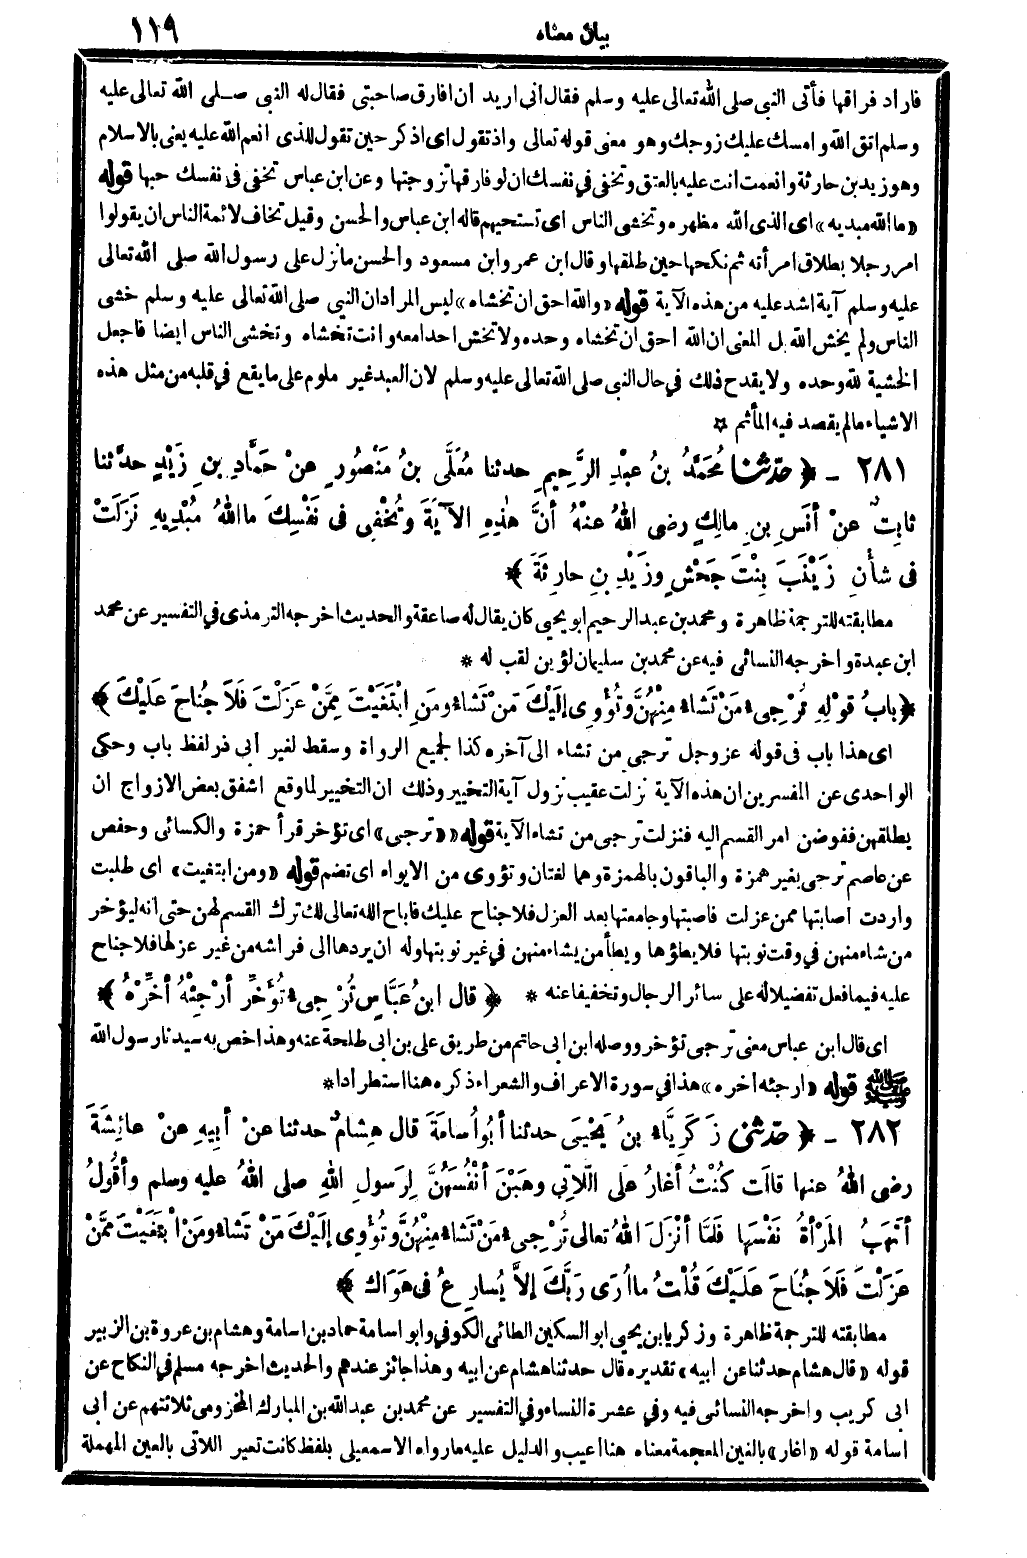 بيان معناه ١١٩
فاراد فراقها فأتى النبى صلى الله تعالى عليه وسلم فقال انى اريد ان افارق صاحبتى فقال له النبى صلى الله تعالى عليه
وسلم اتق الله وامسك عليك زوجك وهو معنى قوله تعالى واذ تقول اى اذ كر حين تقول للذى انعم الله عليه يعنى بالاسلام
وهو زيد بن حارثة وانعمت انت عليه بالعتق وتخفى فى نفسك ان لو فارقها تزوجتها وعن ابن عباس تخفى فى نفسك حبها قوله
«ما الله مبديه» اى الذى الله مظهره وتخشى الناس اى تستحيهم قاله ابن عباس والحسن وقيل تخاف لائمة الناس ان يقولوا
امر رجلا بطلاق امرأته ثم نكحها حين طلقها وقال ابن عمر وابن مسعود والحسن ما نزل على رسول الله صلى الله تعالى
عليه وسلم آية اشد عليه من هذه الآية قوله «والله احق ان تخشاه» ليس المراد ان النبى صلى الله تعالى عليه وسلم خشى
الناس ولم يخش الله بل المعنى ان الله احق ان تخشاه وحده ولا تخش احدا معه وانت تخشاه وتخشى الناس ايضا فاجعل
الخشية لله وحده ولا يقدح ذلك فى حال النبى صلى الله تعالى عليه وسلم لان العبد غير ملوم على ما يقع فى قلبه من مثل هذه
الاشياء مالم يقصد فيه المأثم ✡
٢٨١ - ﴿ حدّثنا مُحَمَّدُ بنُ عبْدِ الرَّحِيمِ حدثنا مُعَلَّى بنُ مَنْصُورٍ عنْ حَمَّادِ بنِ زَيْدٍ حدَّثنا
ثابِتٌ عنْ أنَسِ بنِ مالِكٍ رضى اللهُ عنْهُ أنَّ هٰذِهِ الآيَةَ وتُخْفِى فى نَفْسِكَ ما اللهُ مُبْدِيهِ نَزَلَتْ
فى شأنِ زَيْنَبَ بِنْتَ جَحْشٍ وزَيْدِ بنِ حارِثَةَ ﴾*
مطابقته للترجمة ظاهرة ومحمد بن عبد الرحيم ابو يحيى كان يقال له صاعقة والحديث اخرجه الترمذى فى التفسير عن محمد
ابن عبدة واخرجه النسائى فيه عن محمد بن سليمان لؤين لقب له *
*﴿ بابُ قوْلِهِ تُرْجِىءُ مَنْ تَشاءُ مِنْهُنَّ وتُؤْوِى إلَيْكَ مَنْ تَشاءُ ومَنِ ابْتَغَيْتَ مِمَّنْ عَزَلْتَ فَلاَ جُناحَ عَلَيْكَ ﴾*
اى هذا باب فى قوله عز وجل ترجى من تشاء الى آخره كذا لجميع الرواة وسقط لغير أبى ذر لفظ باب وحكى
الواحدى عن المفسرين ان هذه الآية نزلت عقيب نزول آية التخيير وذلك ان التخيير لما وقع اشفق بعض الازواج ان
يطلقهن ففوضن امر القسم اليه فنزلت ترجى من تشاء الآية قوله «ترجى» اى تؤخر قرأ حمزة والكسائى وحفص
عن عاصم ترجى بغير همزة والباقون بالهمزة وهما لغتان وتؤوى من الايواء اى تضم قوله «ومن ابتغيت» اى طلبت
واردت اصابتها ممن عزلت فاصبتها وجامعتها بعد العزل فلا جناح عليك فاباح الله تعالى لك ترك القسم لهن حتى انه ليؤخر
من شاء منهن فى وقت نوبتها فلا يطؤها ويطأ من يشاء منهن فى غير نوبتها وله ان يردها الى فراشه من غير عزلها فلا جناح
عليه فيما فعل تفضيلا له على سائر الرجال وتخفيفا عنه * ﴿ قال ابنُ عَبَّاسٍ تُرْجِىءُ تُؤَخِّرُ أرْجِئْهُ أخِّرْهُ ﴾*
اى قال ابن عباس معنى ترجى تؤخر ووصله ابن ابى حاتم من طريق على بن ابى طلحة عنه وهذا خص به سيدنا رسول الله
ﷺ قوله «ارجئه اخره» هذا فى سورة الاعراف والشعراء ذكره هنا استطرادا*
٢٨٢ - ﴿ حدّثنى زَكَرِيَّاءُ بنُ يَحْيَى حدثنا أبُو اُسامَةَ قال هِشامٌ حدثنا عنْ أبِيهِ عنْ عائِشَةَ
رضى اللهُ عنها قالَت كُنْتُ أغارُ علَى اللّاتِى وهَبْنَ أنْفُسَهُنَّ لِرَسولِ اللهِ صلى اللهُ عليه وسلم وأقُولُ
أتَهَبُ المَرْأةُ نَفْسَها فَلَمَّا أنْزَلَ اللهُ تعالى تُرْجِىءُ مَنْ تَشاءُ مِنْهُنَّ وتُؤْوِى إلَيْكَ مَنْ تَشاءُ ومَنْ ابْتَغَيْتَ مِمَّنْ
عَزَلْتَ فَلاَ جُنَاحَ عَلَيْكَ قُلْتُ ما أُرَى رَبَّكَ إلاَّ يُسارِعُ فى هَوَاكَ ﴾
مطابقته للترجمة ظاهرة وزكريا بن يحيى ابو السكين الطائى الكوفى وابو اسامة حماد بن اسامة وهشام بن عروة بن الزبير
قوله «قال هشام حدثنا عن ابيه» تقديره قال حدثنا هشام عن ابيه وهذا جائز عندهم والحديث اخرجه مسلم فى النكاح عن
ابى كريب واخرجه النسائى فيه وفى عشرة النساء وفى التفسير عن محمد بن عبد الله بن المبارك المخزومى ثلاثتهم عن أبى
اسامة قوله «اغار» بالغين المعجمة معناه هنا اعيب والدليل عليه ما رواه الاسمعيلى بلفظ كانت تعير اللاتى بالعين المهملة